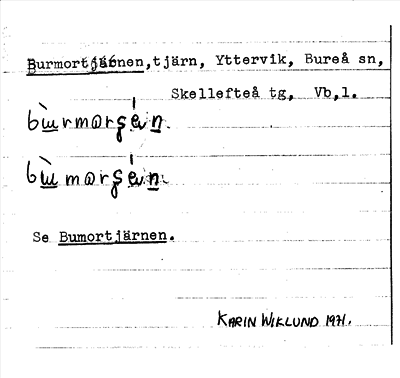 Burmortjärnen, tjärn, Yttervik, Bureå sn,
Skellefteå tg, Vb,l.
Se Bumortjärnen.
KARIN WIKLUND 1971.